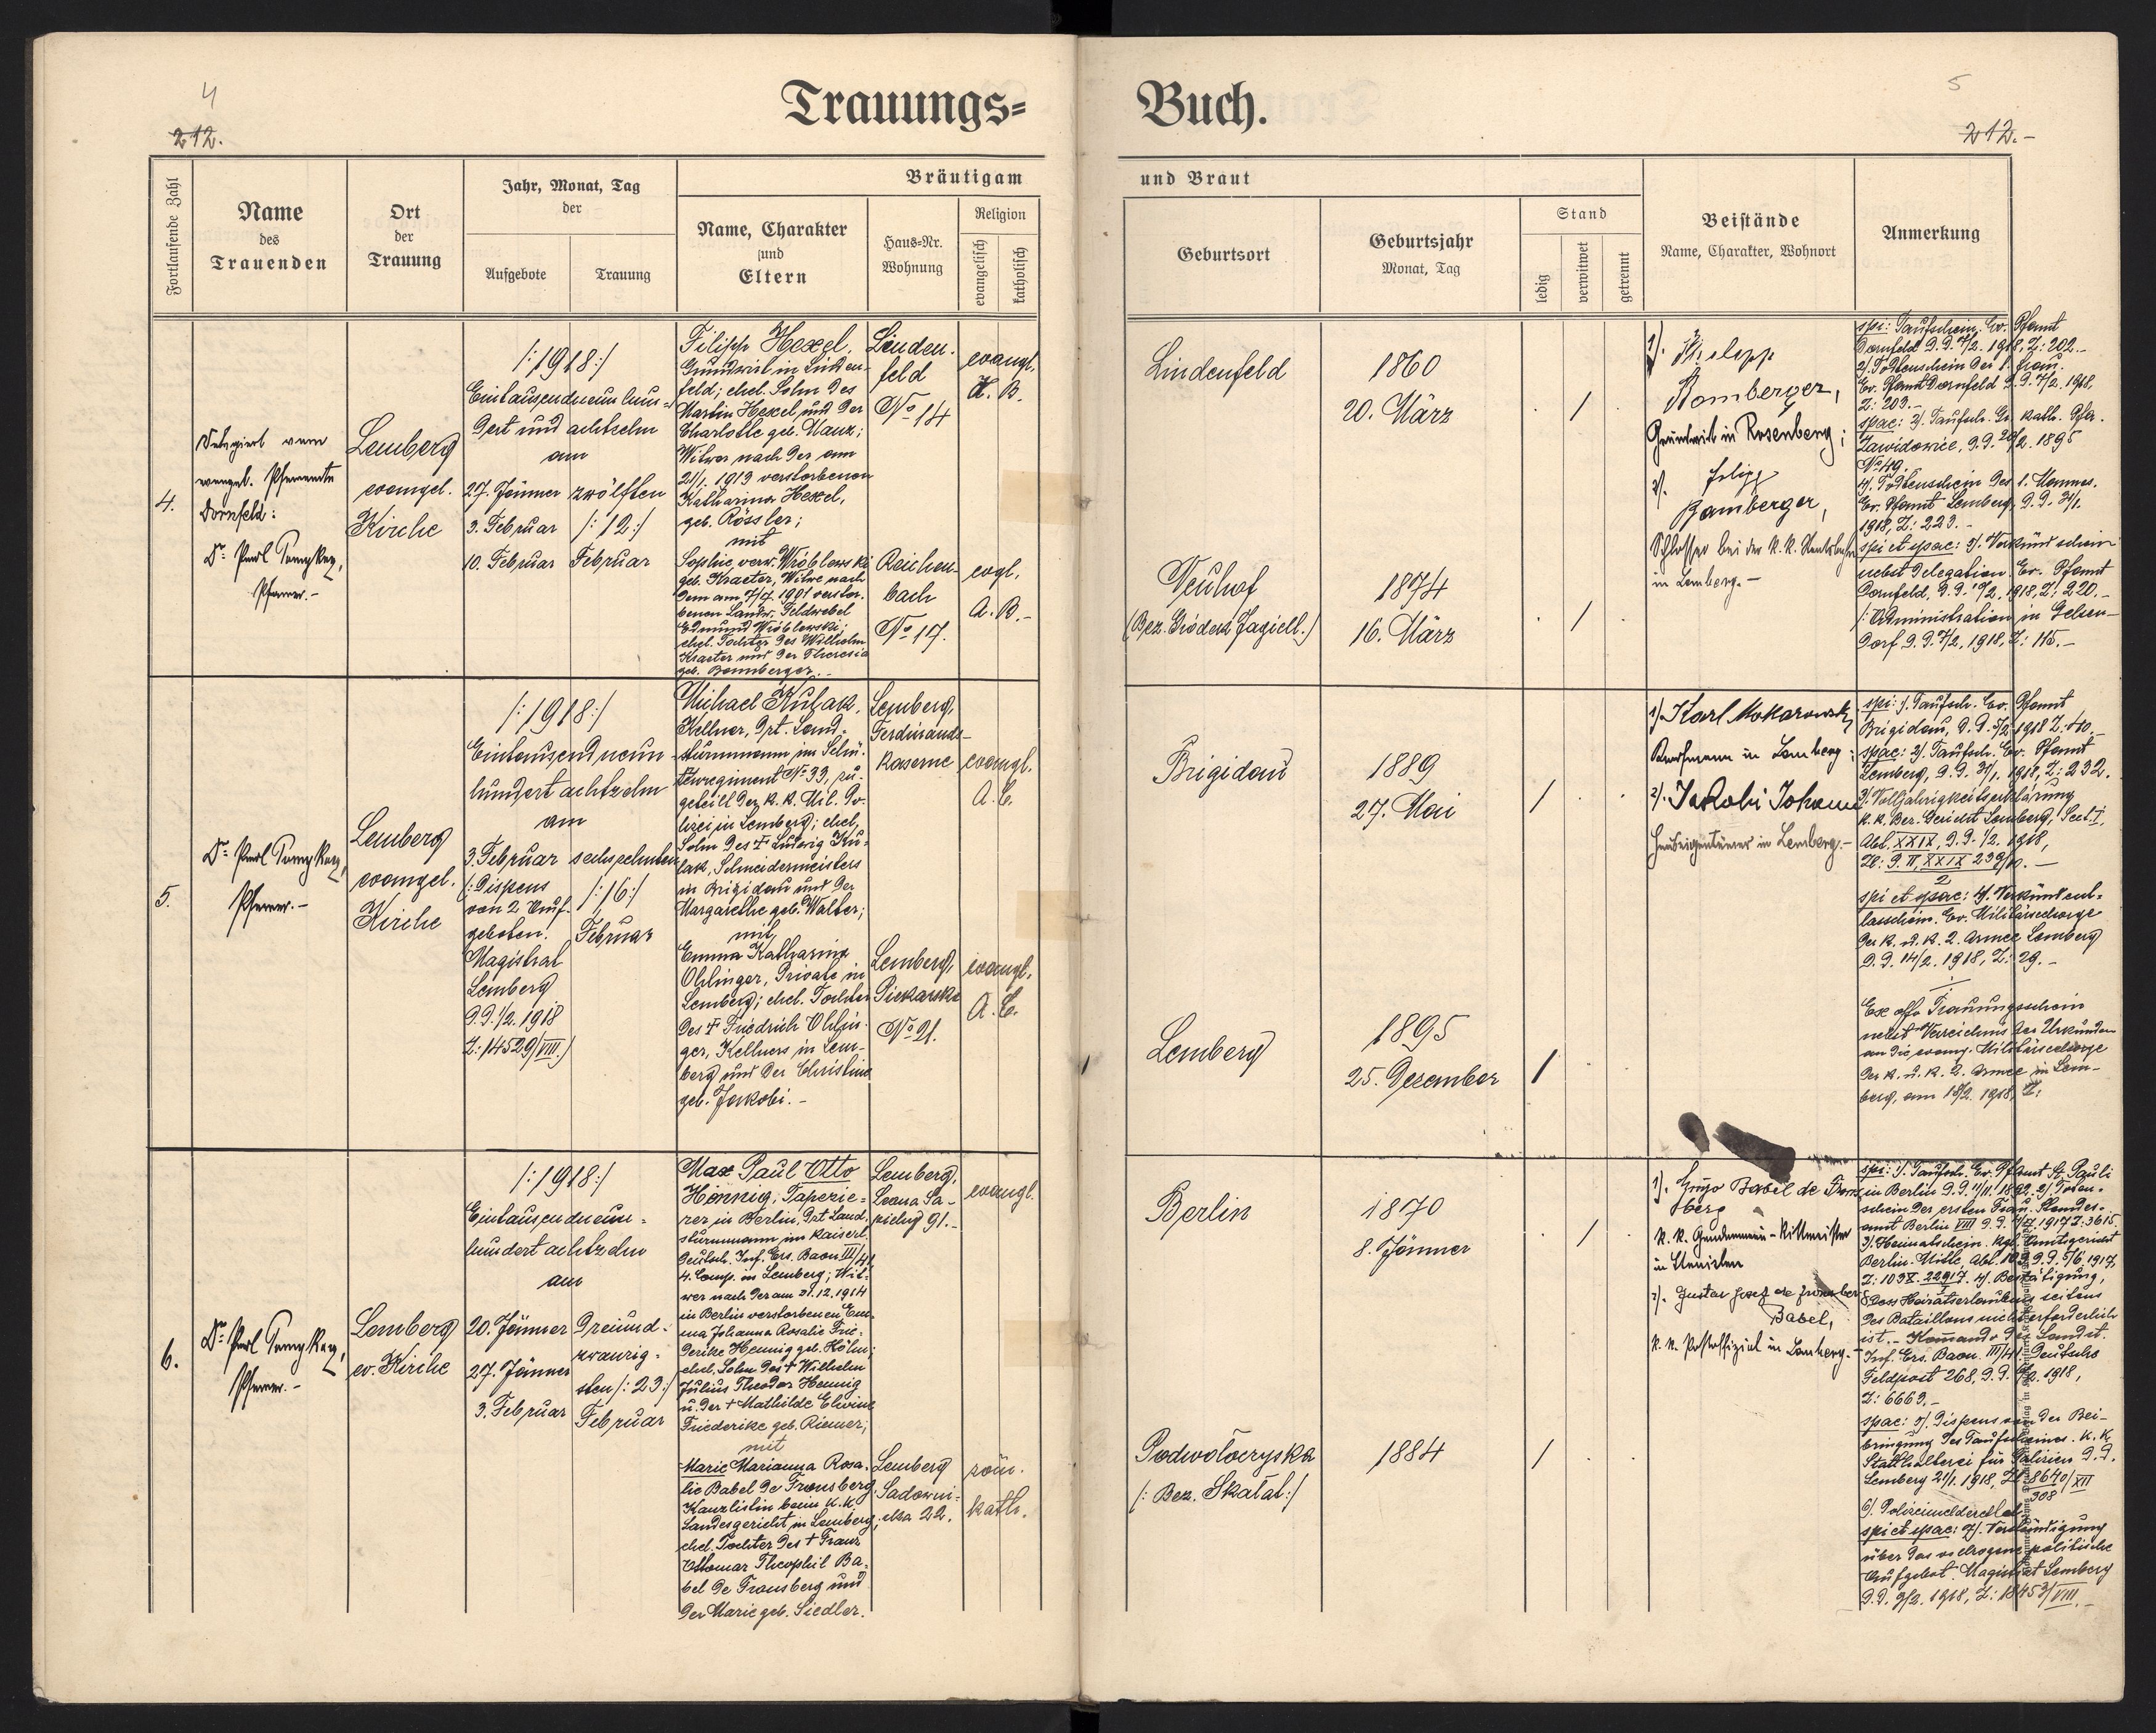 4
212.
Trauungs=
Fortlaufende Zahl
Name
des
Trauenden
Ort
der
Trauung
Jahr, Monat, Tag
der
Aufgebote
Trauung
Bräutigam
Name, Charakter
und
Eltern
Haus=Nr.
Wohnung
Religion
evangelisch
katholisch
4.
Delegiert vom
evangel. Pfarramte
Dornfeld:
Dr. Paul
Pfarrer.-
Lemberg
evangel.
Kirche
/:1918:/
Eintausendneunhun-
dert und achtzehn
am
27. Jänner
3. Februar
10. Februar
zwölften
/:12:/
Februar
Filipp Hexel,
Grundwirt in Linden-
feld; ehel. Sohn des
Martin Hexel und der
Charlotte geb. Manz;
Witwer nach der am
21/1. 1913 verstorbenen
Katharina Hexel,
geb. Rössler;
mit
Sophie, verw. Wróblewski
geb. Kraeter, Witwe nach
dem am 7/7. 1901 verstor-
benen Landw. Feldwebel
Edmund Wróblewski;
ehel. Tochter des Wilhelm
Kraeter und der Theresia
geb. Bomberger.-
Linden-
feld
No 14
Reichen-
bach
No 17.
evangl.
A. B.
evgl.
A. B.-
5.
Dr. Paul
Pfarrer.-
Lemberg
evangel.
Kirche
/:1918:/
Eintausendneun-
hundert achtzehn
am
3. Februar
/:Dispens
von 2 Auf-
geboten.
Magistrat
Lemberg
d.d. 1/2. 1918
Z: 14529/VIII.)
sechszehnten
/:16:/
Februar
Michael Kulak,
Kellner, dzt. Land-
sturmmann im Schü-
tzenregiment No 33, zu-
geteilt der k. k. Mil. Po-
lizei in Lemberg; ehel.
Sohn des † Ludwig Ku-
lak, Schneidermeisters
in Brigidau und der
Margarethe geb. Walter;
mit
Emma Katharina
Ohlinger, Private in
Lemberg; ehel. Tochter
des † Friedrich Ohlin-
ger, Kellners in Lem-
berg und der Christine
geb. Jakobi.-
Lemberg,
Ferdinands-
kaserne
Lemberg,
Piekarska
No 21.
evangl.
A. C.
evangl.
A. C.
6.
Dr. Paul
Pfarrer.-
Lemberg
ev. Kirche
/:1918:/
Eintausendneun-
hundert achtzehn
am
20. Jänner
27. Jänner
3. Februar
Dreiund-
zwanzig-
sten /:23:/
Februar
Max Paul Otto
Hennig, Tapezie-
rer in Berlin, dzt Land-
sturmmann im kaiserl.
Deutsch. Inf. Ers. Baon III/4
4. Comp. in Lemberg; Wit-
wer nach der am 21.12.1914
in Berlin verstorbenen Em-
ma Johanna Rosalie Frie-
derike Hennig geb. Höhn;
ehel. Sohn des † Wilhelm
Julius Theodor Hennig
u. der † Mathilde Elvine
Friederike geb. Riemer;
mit
Marie Marianna Rosa-
lie Babel de Fronsberg,
Kanzlistin beim k. k.
Landesgericht in Lemberg;
ehel. Tochter des † Franz
Othomar Theophil Ba-
bel de Fronsberg und
der Marie geb. Siedler.
Lemberg,
Leona Sa-
piehy 91.-
Lemberg
Sadowni-
cka 22.
evangl.
röm.
kath.
Buch.
5
212.-
und Braut
Geburtsort
Geburtsjahr
Monat, Tag
Stand
ledig
verwitwet
getrennt
Beistände
Name, Charakter, Wohnort
Anmerkung
Lindenfeld
1860
20. März
Neuhof
(Bez. Gródek Jagiell.)
1874
16. März
1). Philipp
Bomberger,
Grundwirt in Rosenberg;
2). Filipp
Bamberger,
Schlosser bei der k. k. Staatsbahn
in Lemberg.-
spi: Taufschein. Ev. Pfarrt
Dornfeld d.d. 7/2. 1918, Z: 202.-
2). Todtenschein der 1. Frau.
Ev. Pfarrt Dornfeld d.d. 7/2. 1918,
Z: 203.-
spae: 3). Taufsch. Gr. kath. Pfa.
Zawidowice, d.d. 20/2. 1895
No 49.
4). Todtenschein des 1. Mannes.
Ev. Pfarrt Lemberg, d.d. 31/1.
1918, Z: 223.-
spi et spae: 5). Verkündschein
nebst Delegation. Ev. Pfarrt
Dornfeld, d.d. 10/2. 1918, Z: 220.-
/:Administration in Gelsen-
dorf d.d. 7/2. 1918, Z: 115.-
Brigidau
1889
27. Mai
Lemberg
1895
25. Dezember
1). Karl Mokarowsky
Kaufmann in Lemberg;
2). Jakobi Johann
Hauseigentümer in Lemberg.-
spi: 1). Taufsch. Ev. Pfarrt
Brigidau, d.d. 5/2. 1918 Z: 40.-
spae: 2). Taufsch. Ev. Pfarrt
Lemberg, d.d. 31/1. 1918, Z: 232.
3). Volljährigkeitserklärung
k. k. Bez. Gericht Lemberg, Sect. I,
Abt. XXIX, d.d. 1/2. 1918,
spi et spae: 4). Verkündent-
lasschein. Ev. Militärseelsorge
der k. u. k. 2. Armee Lemberg
d.d. 14/2. 1918, Z: 29.-
Ex offo Trauungsschein
nebst Verzeichnis der Urkunden
an die evang. Militärseelsorge
der k. u. k. 2. Armee in Lem-
berg, am 18/2. 1918, Z:
Berlin
1870
8. Jänner
Podwołoczyska
/:Bez. Skałat:/
1884
1). Hugo Babel de Frons-
berg
k. k. Gendarmerie-Rittmeister
2). Gustav Josef de Fronsberg
Babel,
k. k. Postoffizial in Lemberg.-
spi: 1). Taufsch. Ev. Pfarrt St. Pauli
in Berlin d.d. 11/11. 1892. 2) Toten-
schein der ersten Frau. Standes-
amt Berlin VIII
3). Heimatschein. Kgl. Amtsgericht
Berlin-Mitte,
4). Bestätigung,
dass Heiratserlaubnis seitens
des Bataillons nicht erforderlich
ist.- Komando des Landst.
Inf. Ers. Baon. III/4, Deutsche
Feldpost 268,
Z: 6663.-
spae: 5). Dispens von der Bei-
bringung des Taufscheines. k. k.
Statthalterei für Galizien d.d.
Lemberg 21/1. 1918, Z: 8640/XII
308
6). Polizeimeldezettel
spi et spae: 7). Verständigung
über das vollzogene politische
Aufgebot. Magistrat Lemberg